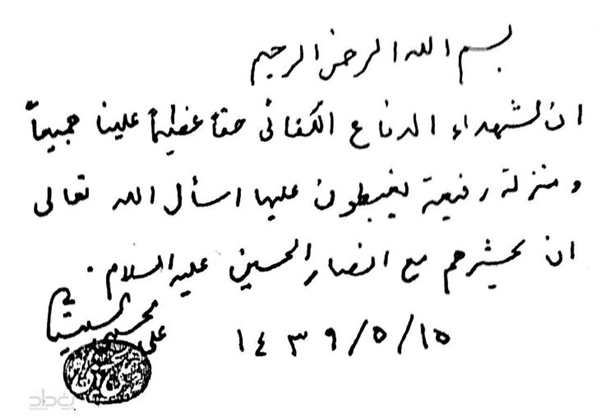 بسم الله الرحمن الرحيم
ان لشهداء الدفاع الكفائي حقاً عظيماً علينا جميعاً
و منزلة رفيعة يغبطون عليها اسأل الله تعالى
ان يحشرهم مع انصار الحسين عليه السلام .
علي الحسيني السيستاني
١٤٣٩/٥/١٥
بغداد